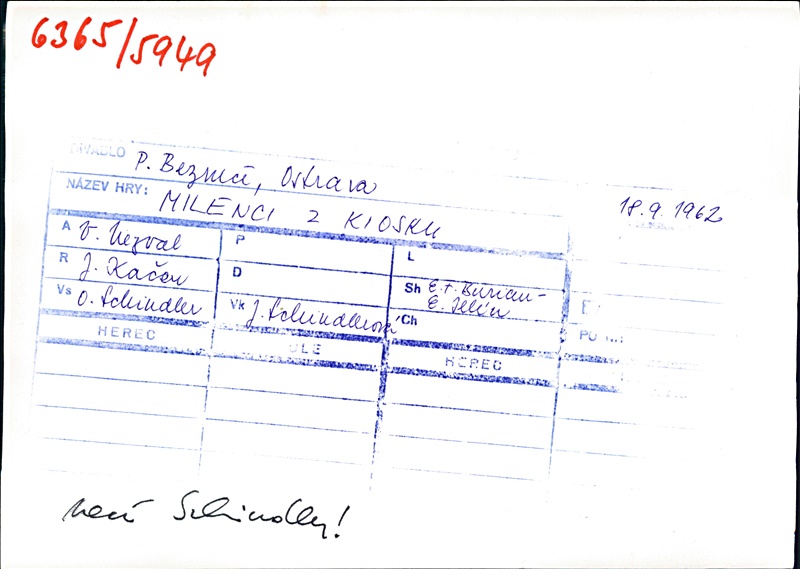 6365/5949
DIVADLO P. Bezruče, Ostrava
NÁZEV HRY: MILENCI Z KIOSKU 18.9.1962
A V. Nezval P L
R J. Kačer D Sh E.F. Burian-
Vs O. Schindler Vk J. Schindlerová Ch
HEREC ROLE HEREC
není Schindler!